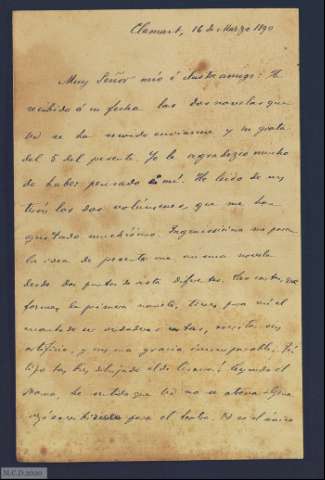 Clamart, 16 de Marzo 1890
Muy Señor mío é ilustre amigo: He
recibido á su fecha las dos novelas que
Vd se ha servido enviarme y su grata
del 5 del presente. Yo le agradezco mucho
de haber pensado en mí. He leído de un
tirón los dos volúmenes que me han
gustado muchísimo. Ingeniosísima me parece
la idea de presentarme una misma novela
desde dos puntos de vista diferentes. Las cartas, que
forman la primera novela, tienen para mí el
encanto de ser verdaderas cartas, escritas sin
artificio, y con una gracia incomparable. El
tipo está tan bien dibujado
drama, he sentido que Vd no se atreva
para el teatro. Vd es el único
M.C.D 2020